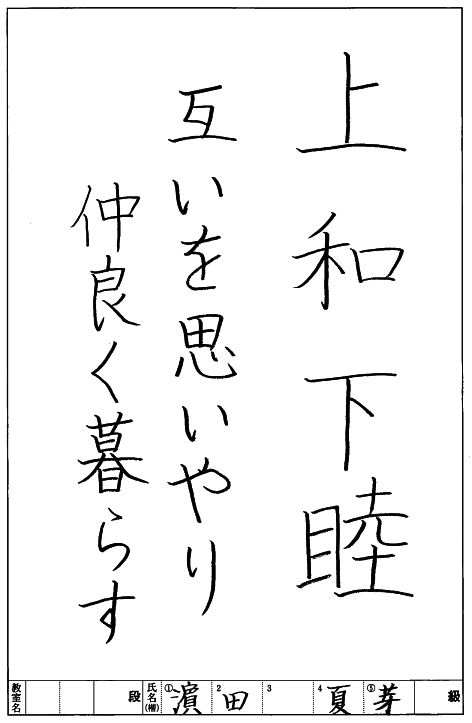 上和下睦
互いを思いやり
仲良く暮らす
級
⑤ 芽
4 夏
3
2 田
① 濵
氏名(楷)
段
教室名